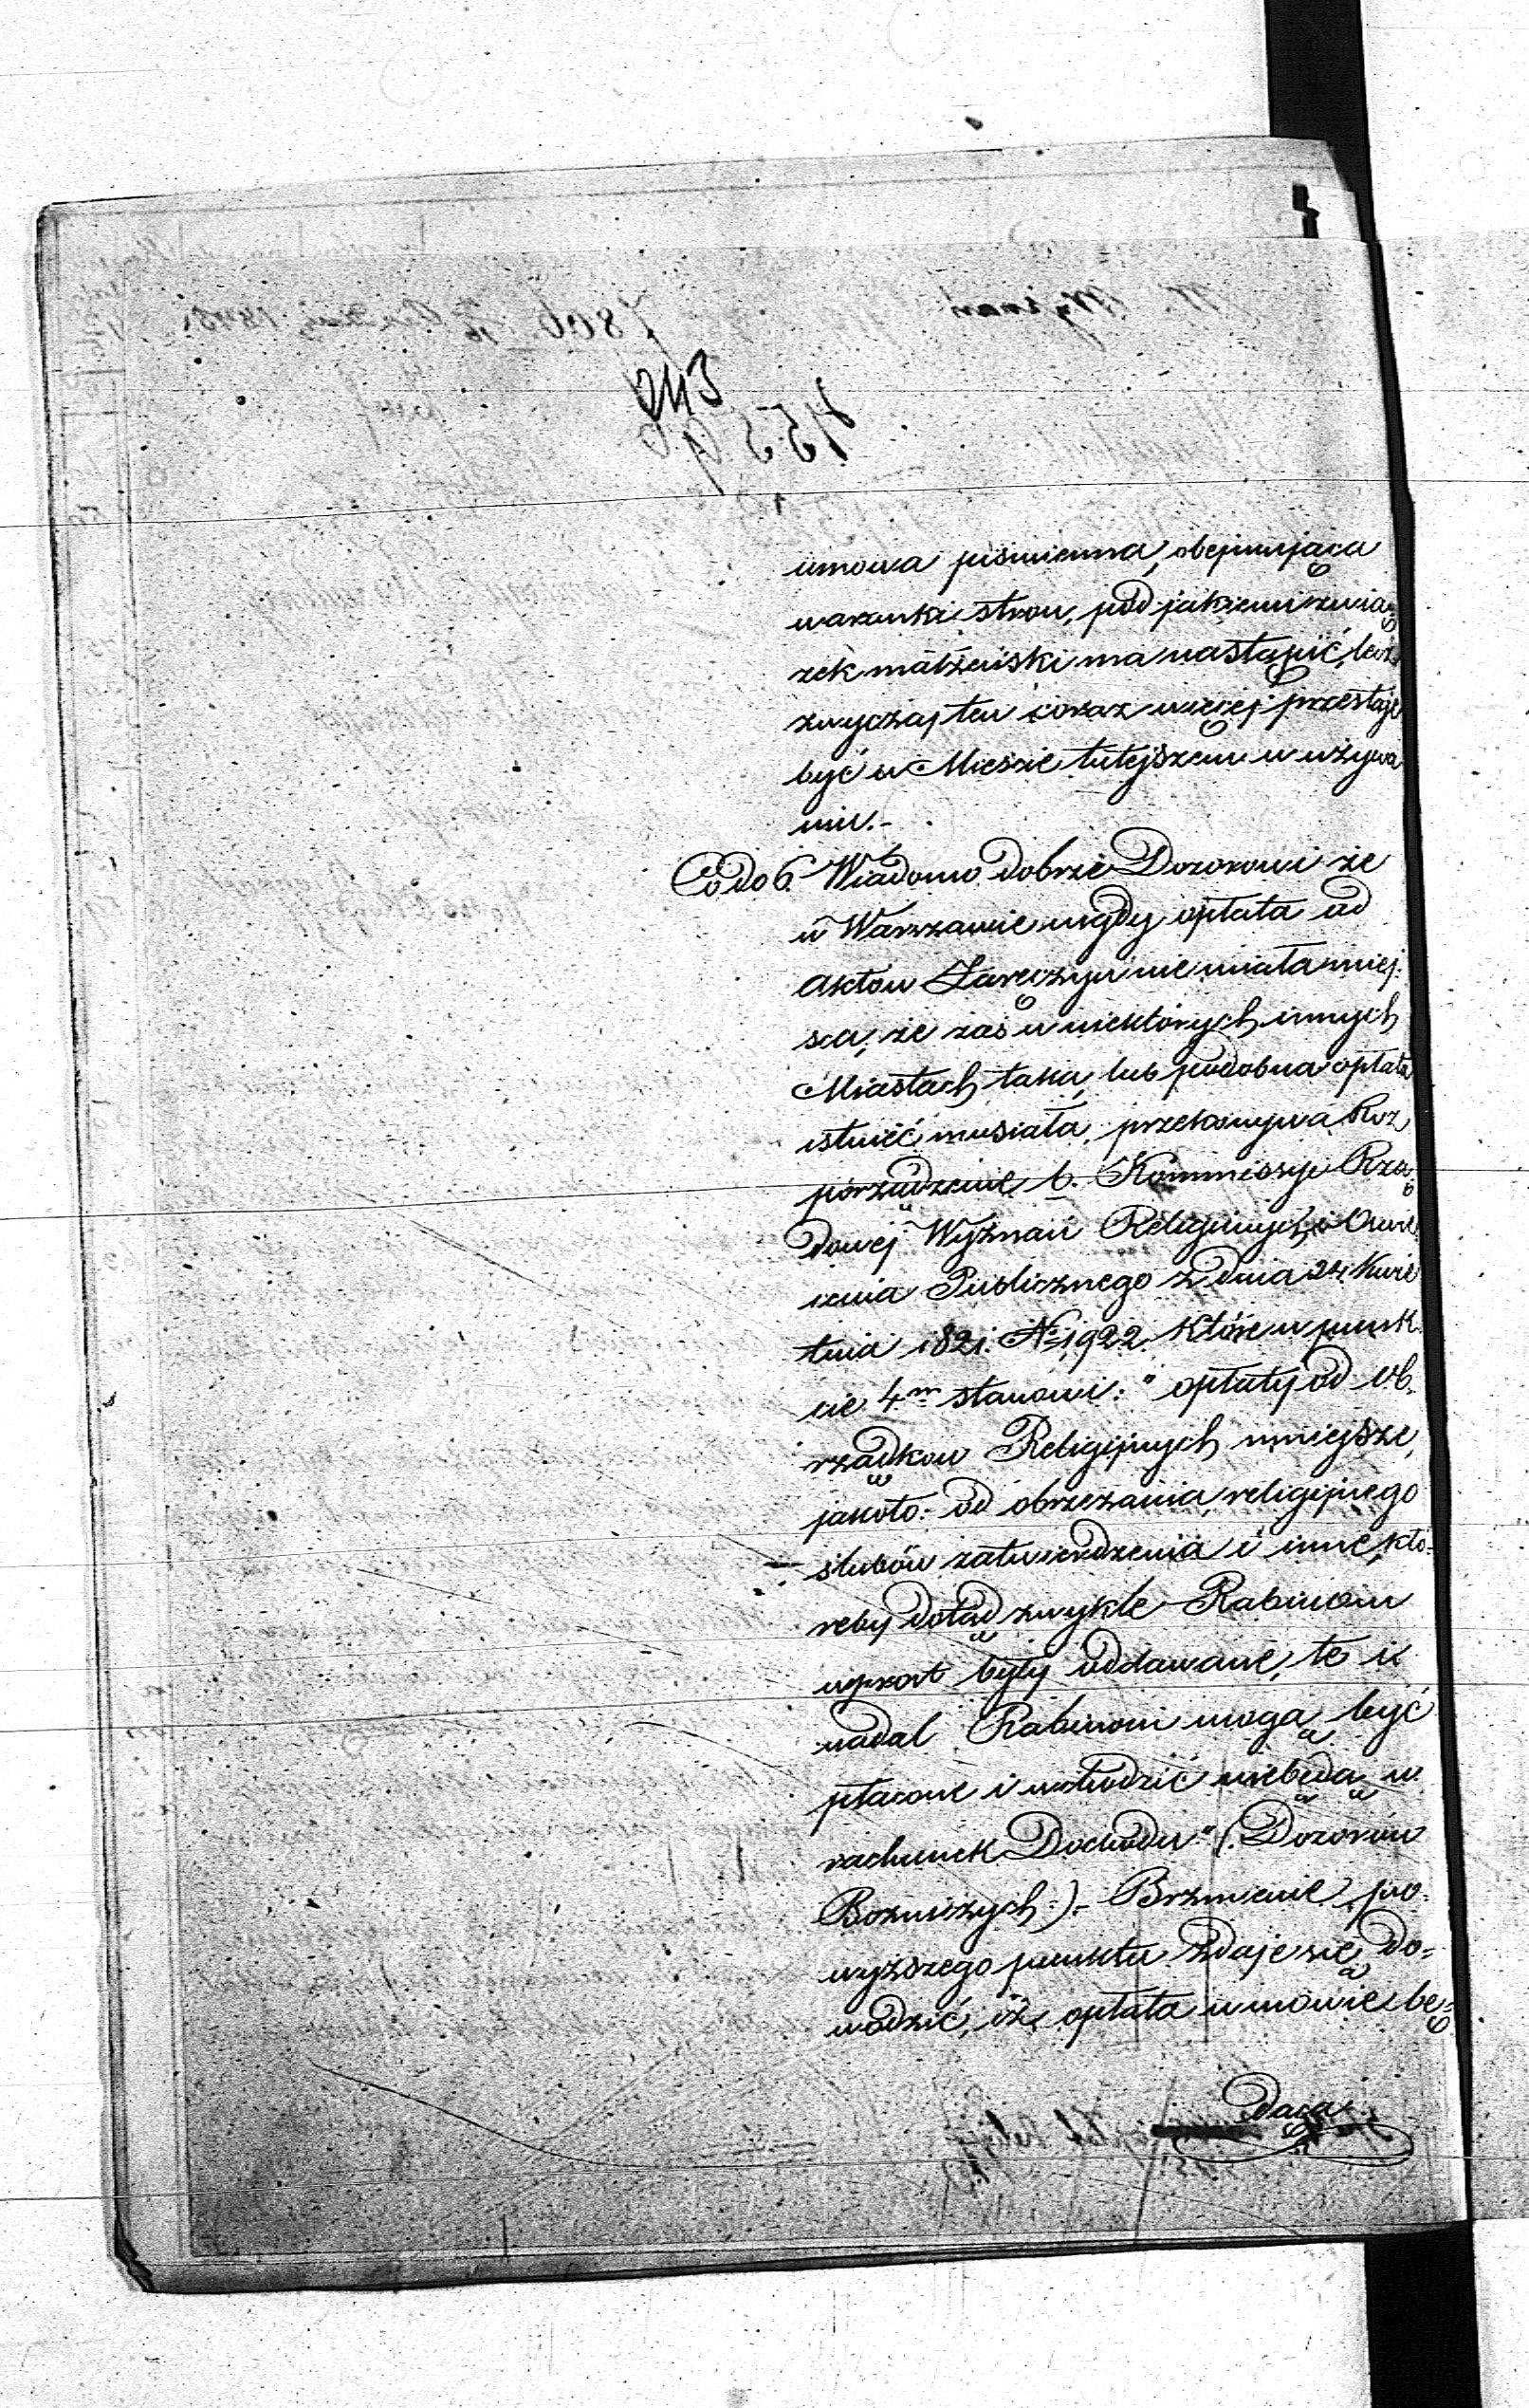 umowa piśmienna, obejmująca
warunki stron, pod jakiemi zwią-
zek małżeński ma nastąpić, lecz
zwyczaj ten coraz więcej przestaje
być w Mieście tutejszem w używa
niu.-
Co do 6. Wiadomo dobrze Dozorowi że
w Warszawie nigdy opłata od
Aktów Zaręczyn nie miała miej-
sca, że zaś w niektórych innych
Miastach taka, lub podobna opłata
istnieć musiała, przekonywa Roz
porządzenie b. Kommissyi Rzą
dowej Wyznań Religijnych i Oświe
cenia Publicznego z dnia 24 Kwie
tnia 1821. № 1922. które w punk
cie 4m stanowi: " opłaty od Ob-
rządkow Religijnych mniejsze,
jakoto: od obrzezania religijnego
ślubów zatwierdzenia i inne, któ-
reby dotąd zwykle Rabinom
wprost były oddawane, te i
nadal Rabinom mogą być
płacone i wchodzić niebędą w
rachunek Dochodu" (Dozorów
Bożniczych).- Brzmienie po-
wyższego punktu zdaje się do-
wodzić, iż opłata w mowie bę-
dąca